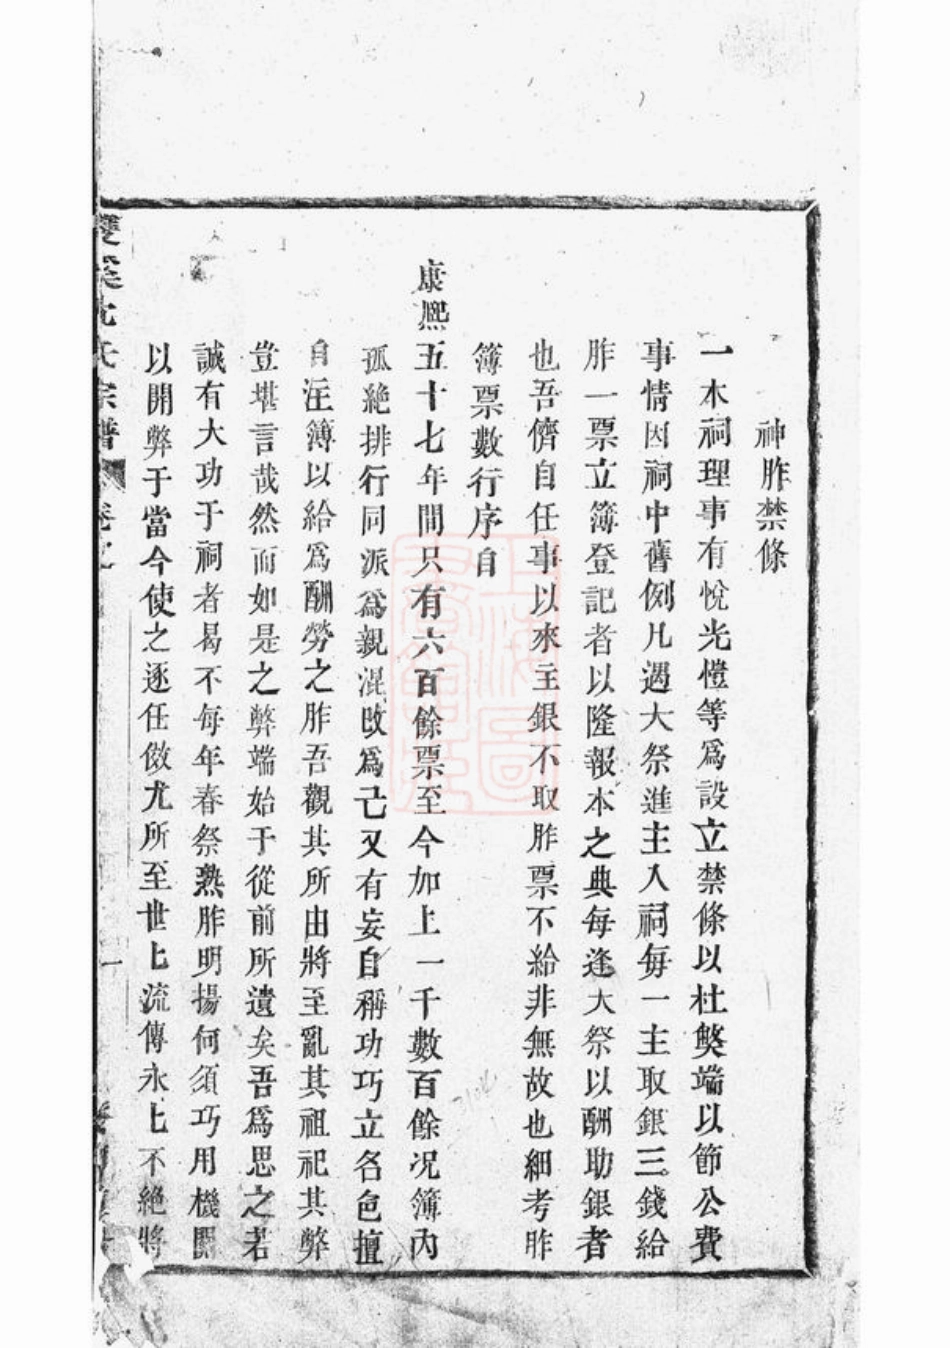 神胙禁條
一本祠理事有悅光愷等爲設立禁條以杜獘端以節公費
事情因祠中舊例凡遇大祭進主入祠每一主取銀三錢給
胙一票立簿登記者以隆報本之典每逢大祭以酬助銀者
也吾儕自任事以來主銀不取胙票不給非無故也細考胙
簿票數行序自
康熙五十七年間只有六百餘票至今加上一千數百餘况簿內
孤絶排行同派爲親混改爲己又有妄自稱功巧立名色擅
自注簿以給爲酬勞之胙吾觀其所由將至亂其祖祀其弊
豈堪言哉然而如是之弊端始于從前所遺矣吾爲思之若
誠有大功于祠者曷不每年春祭熟胙明揚何須巧用機關
以開弊于當今使之逐任傚尤所至世上流傳永上不絶將
雙溪沈氏宗譜 卷之 一